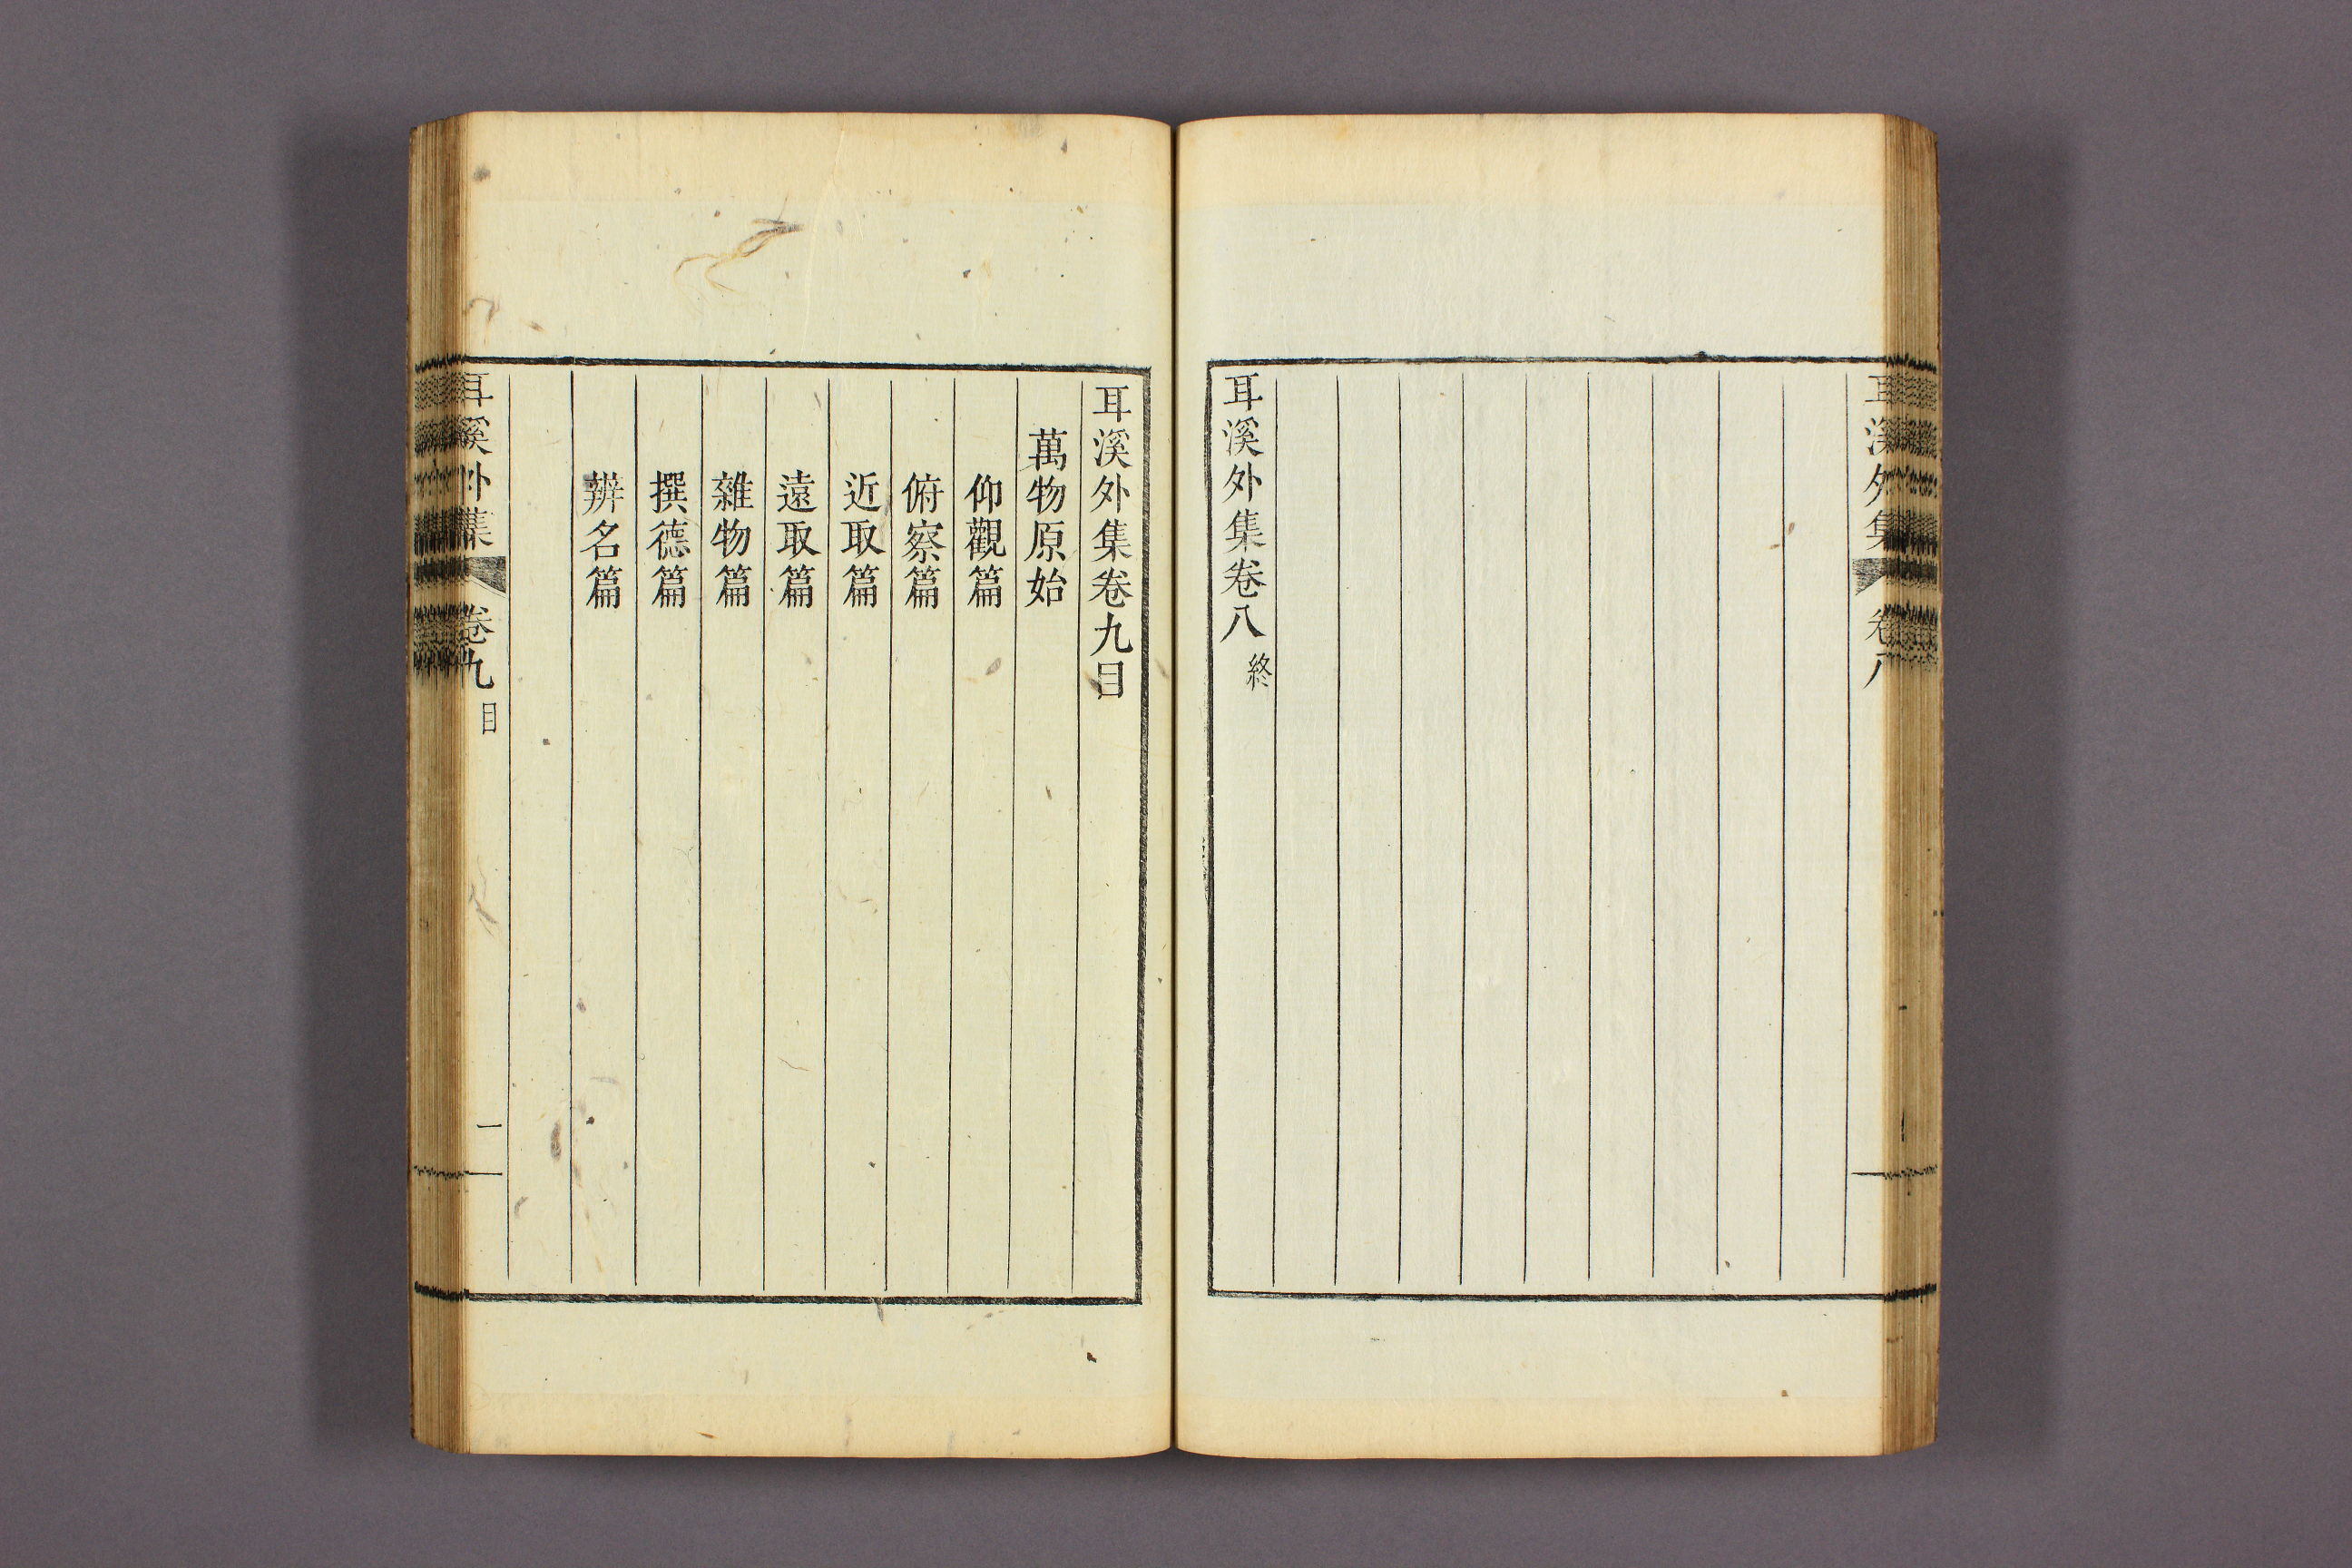 耳溪外集 卷八
耳溪外集卷八 終
耳溪外集卷九目
萬物原始
仰觀篇
俯察篇
近取篇
遠取篇
雜物篇
撰德篇
辨名篇
耳溪外集 卷九 目 一